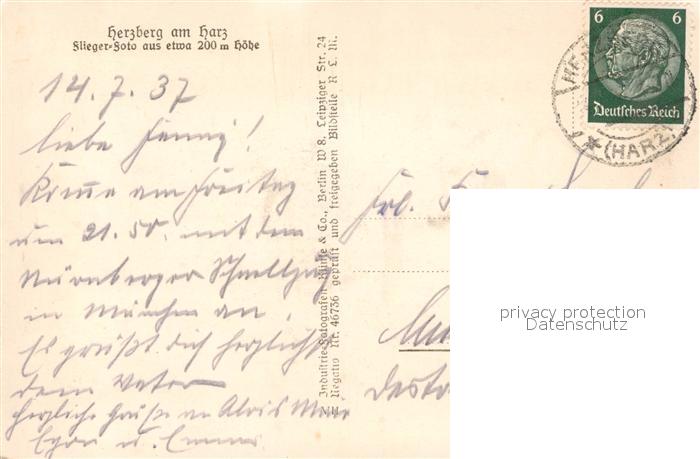 Herzberg am Harz
Flieger-Foto aus etwa 200 m Höhe
14.7.37
Liebe Fanny!
Komme am Freitag
um 21.50. mit dem
Nürnberger Schnellzug
in München an.
Es grüßt dich herzlichst
dein Vater
Herzliche Grüße an Alois
Egon u. Emma
Industrie-Fotografen Klinke & Co., Berlin W 8, Leipziger Str. 24
Negativ Nr. 46736 geprüft und freigegeben Bildstelle R. L. M.
6 6
Deutsches Reich
(HARZ)
Frl.
privacy protection
Datenschutz